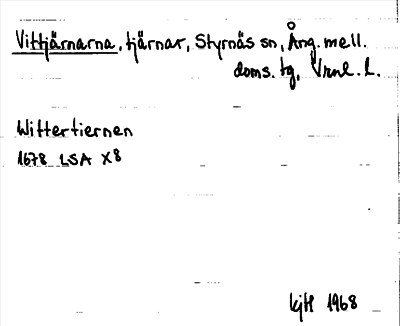 Vittjärnarna, tjärnar, Styrnäs sn, Ång. mell.
doms. tg, Vrnl. l.
Wittertiernen
1678 LSA X8
KjH 1968